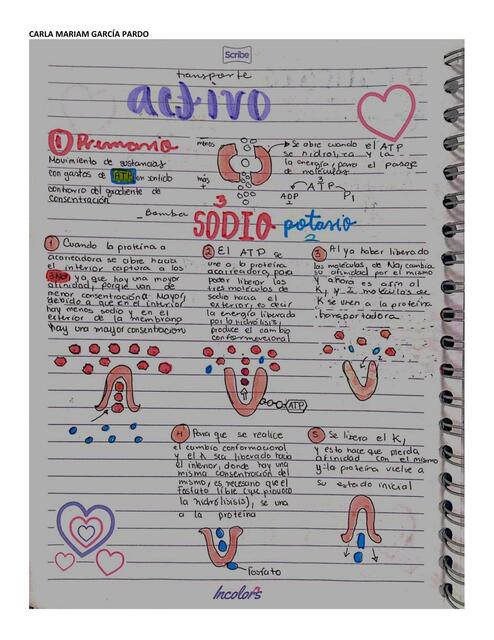 CARLA MARIAM GARCÍA PARDO
Scribe
transporte
activo
1 Primario
Movimiento de sustancias
con gastos de ATP en sentido
contrario del gradiente de
concentración
menos
más
+
Se abre cuando el ATP
se hidroliza y la
la energía, para el pasaje
de moléculas
ATP
ADP
Pi
3 2
_Bomba SODIO potasio
1 Cuando la proteína
acarreadora se abre hacia
el interior captura a los
3Na, ya que hay una mayor
afinidad, porque van de
menor concentración. Mayor,
debido a que en el interior
hay menos sodio y en el
exterior de la membrana
hay una mayor concentración
2 El ATP se
une a la proteína
acarreadora, para
poder liberar las
tres moléculas de
sodio hacia el
exterior, es decir
la energía liberada
por la hidrólisis,
produce el cambio
conformacional
3 Al ya haber liberado
las moléculas de Na, cambia
su afinidad por el mismo
y ahora es afín al
K, y 2 moléculas de
K se unen a la proteína
transportadora.
ATP
4 Para que se realice
el cambio conformacional
y el K sea liberado hacia
el interior, donde hay una
misma concentración del
mismo, es necesario que el
fosfato libre (que provocó
la hidrólisis), se una
a la proteína
5 Se libera el K,
y esto hace que pierda
afinidad con el mismo
y la proteína vuelve a
su estado inicial
Fosfato
Incolors